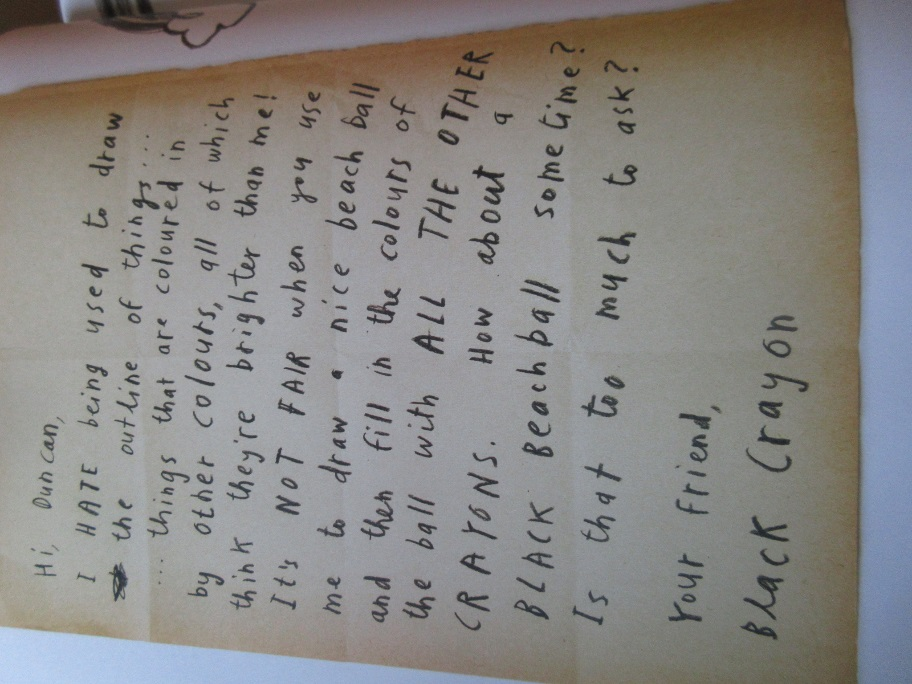 Hi, Duncan,
I HATE being used to draw
the outline of things...
... things that are coloured in
by other colours, all of which
think they're brighter than me!
It's NOT FAIR when you use
me to draw a nice beach ball
and then fill in the colours of
the ball with ALL THE OTHER
CRAYONS. How about a
BLACK Beach ball sometime?
Is that too much to ask?
Your friend,
Black Crayon